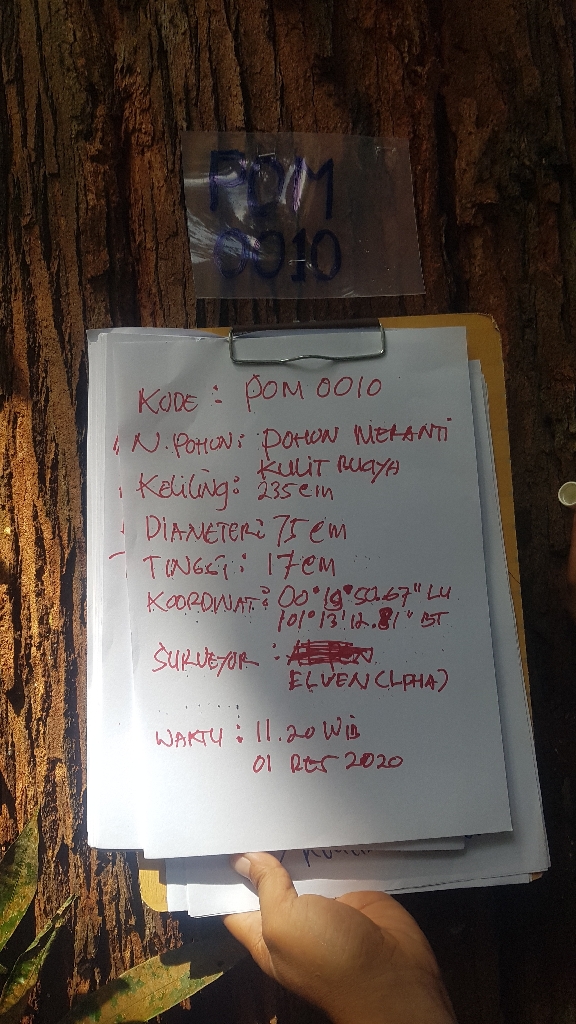 POM
0010
KODE : POM 0010
N. POHON : POHON MERANTI
KULIT BUAYA
Keliling : 235 cm
DIAMETER : 75 cm
TINGGI : 17 cm
KOORDINAT : 00° 19' 50.67" LU
101° 13' 12.81" BT
SURVEYOR :
ELVEN (LPHA)
WAKTU : 11.20 WIB
01 DES 2020